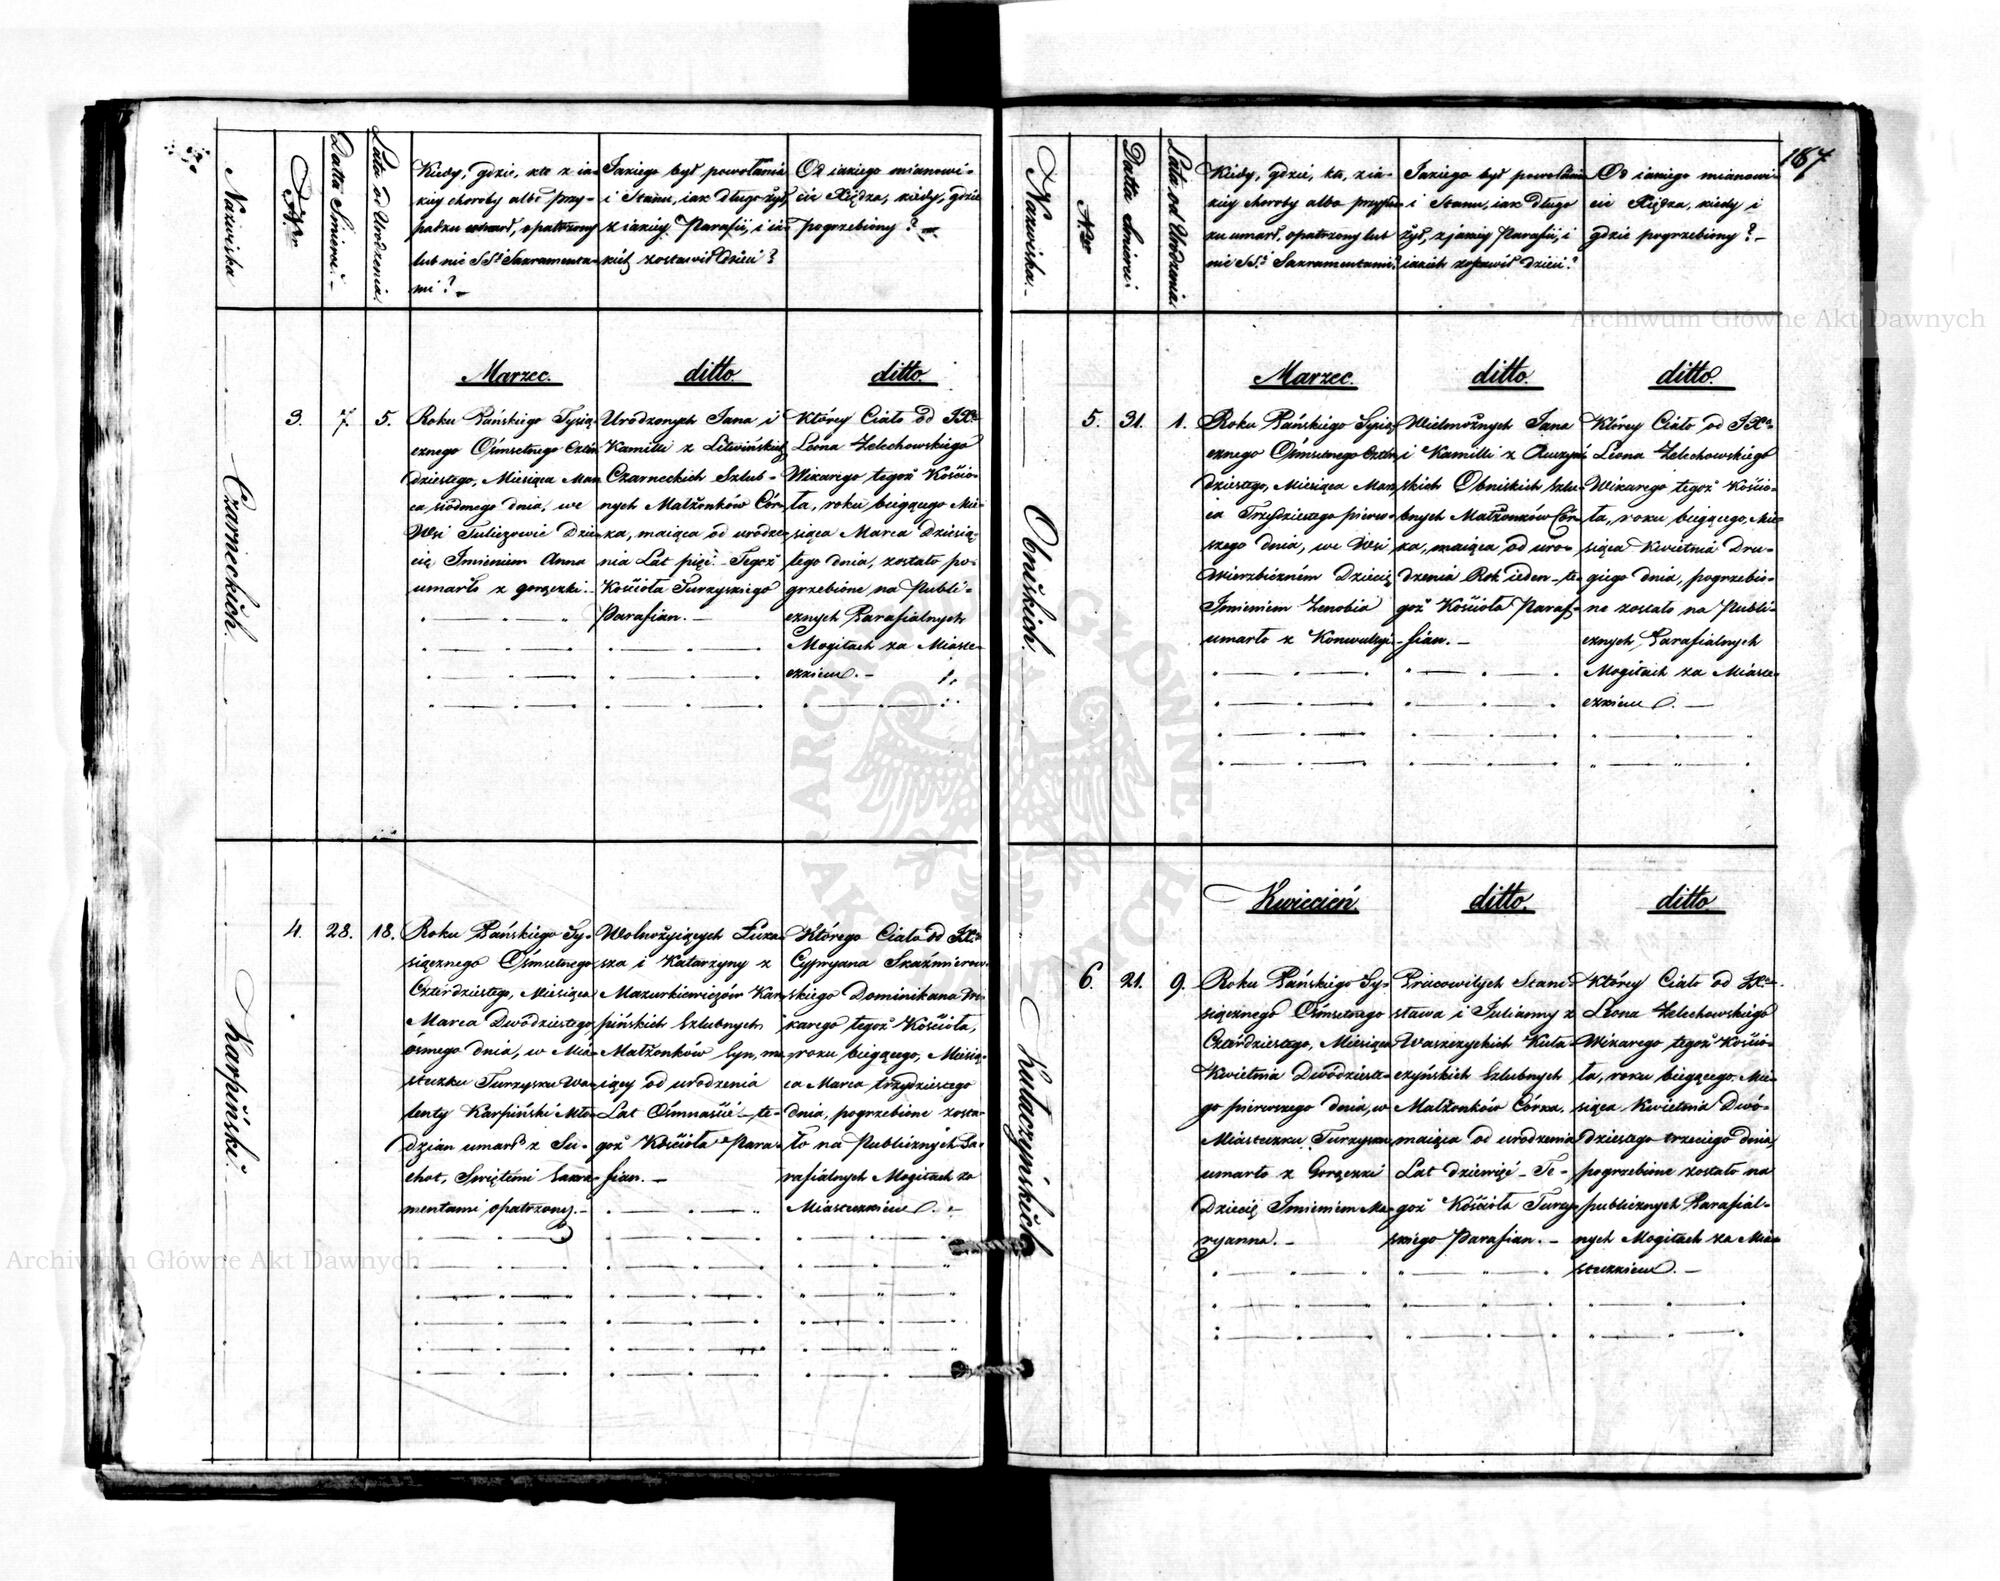 Nazwiska
Nr
Datta Smierci.
Lata od Urodzenia.
Kiedy, gdzie, kto z ia-
kiey choroby albo przy-
padku umarł, opatrzony
lub nie SSi Sakramenta-
mi? –
Jakiego był powołania
i Stanu, iak długo żył,
z iakiey Parafii, i ia-
kich zostawił Dzieci?
Od iakiego mianowi-
cie Xiędza, kiedy, gdzie
pogrzebiony? –
Czarneckich.
3.
7.
5.
Marzec.
Roku Pańskiego Tysią-
cznego Ósmsetnego Czter-
dziestego, Miesiąca Mar-
ca siódmego dnia, we
Wsi Tuliczowie Dzie-
cię Imieniem Anna
umarło z gorączki.
ditto.
Urodzonych Jana i
Kamilli z Litwińskich
Czarneckich Szlub-
nych Małżonków Cór-
ka, maiąca od urodze-
nia Lat pięć. Tegoż
Kościoła Turzyskiego
Parafian. –
ditto.
Którey Ciało od JXa
Leona Zelechowskiego
Wikarego tegoż Kościo-
ła, roku biegącego Mie-
siąca Marca Dziesią-
tego dnia, zostało po-
grzebione na Publi-
cznych Parafialnych
Mogiłach za Miaste-
czkiem. –
Karpiński.
4.
28.
18.
Roku Pańskiego Ty-
siącznego Ósmsetnego
Czterdziestego, Miesiąca
Marca Dwódziestego
ósmego dnia, w Mia-
steczku Turzysku Wa-
lenty Karpiński Mło-
dzian umarł z Su-
chot, Swiętemi Sakra-
mentami opatrzony. –
Wolnożyiących Łuka-
sza i Katarzyny z
Mazurkiewiczów Kar-
pińskich Szlubnych
Małżonków Syn, ma-
iący od urodzenia
Lat Ośmnaście – te-
goż Kościoła Para-
fian. –
Którego Ciało od JXa
Cypryana Skaźmierow-
skiego Dominikana Wi-
karego tegoż Kościoła,
roku biegącego, Miesią-
ca Marca, trzydziestego
dnia, pogrzebione zosta-
ło na Publicznych Pa-
rafialnych Mogiłach za
Miasteczkiem. –
187
Nazwiska. –
Nr
Datta Smierci.
Lata od Urodzenia.
Kiedy, gdzie, kto, z ia-
kiey choroby albo przypad-
ku umarł, opatrzony lub
nie SS.i Sakramentami?
Jakiego był powołania
i Stanu, iak długo
żył, z jakiey Parafii, i
iakich zostawił dzieci?
Od iakiego mianowi-
cie Xiędza, kiedy i
gdzie pogrzebiony? –
Obniskich.
5.
31.
1.
Marzec.
Roku Pańskiego Tysią-
cznego Ósmsetnego Czter-
dziestego, Miesiąca Mar-
ca Trzydziestego pierw-
szego dnia, we Wsi
Wierzbicznem Dziecię
Imieniem Zenobia
umarło z Konwulsyi
ditto.
Wielmożnych Jana
i Kamilli z Ruczyń-
skich Obniskich Szlu-
bnych Małżonków Cór-
ka, maiąca od uro-
dzenia Rok ieden – te-
goż Kościoła Paraf-
fian. –
ditto.
Którey Ciało od JXa
Leona Zelechowskiego
Wikarego tegoż Kościo-
ła, roku biegącego, Mie-
siąca Kwietnia Dru-
giego dnia, pogrzebio-
ne zostało na Publi-
cznych Parafialnych
Mogiłach za Miaste-
czkiem. –
Kułaczyńskich
6.
21.
9.
Kwiecień.
Roku Pańskiego Ty-
siącznego Ósmsetnego
Czterdziestego, Miesiąca
Kwietnia Dwódzieste-
go pierwszego dnia, w
Miasteczku Turzysku
umarło z Gorączki
Dziecię Imieniem Ma-
ryanna. –
ditto.
Pracowitych Stani-
sława i Julianny z
Waszczyckich Kuła-
czyńskich Szlubnych
Małżonków Córka,
maiąca od urodzenia
Lat dziewięć – Te-
goż Kościoła Turzy-
skiego Parafian. –
ditto.
Którey Ciało od JXa
Leona Zelechowskiego
Wikarego tegoż Kościo-
ła, roku biegącego, Mie-
siąca Kwietnia Dwó-
dziestego trzeciego dnia,
pogrzebione zostało na
publicznych Parafial-
nych Mogiłach za Mia-
steczkiem. –
Archiwum Główne Akt Dawnych
Archiwum Główne Akt Dawnych